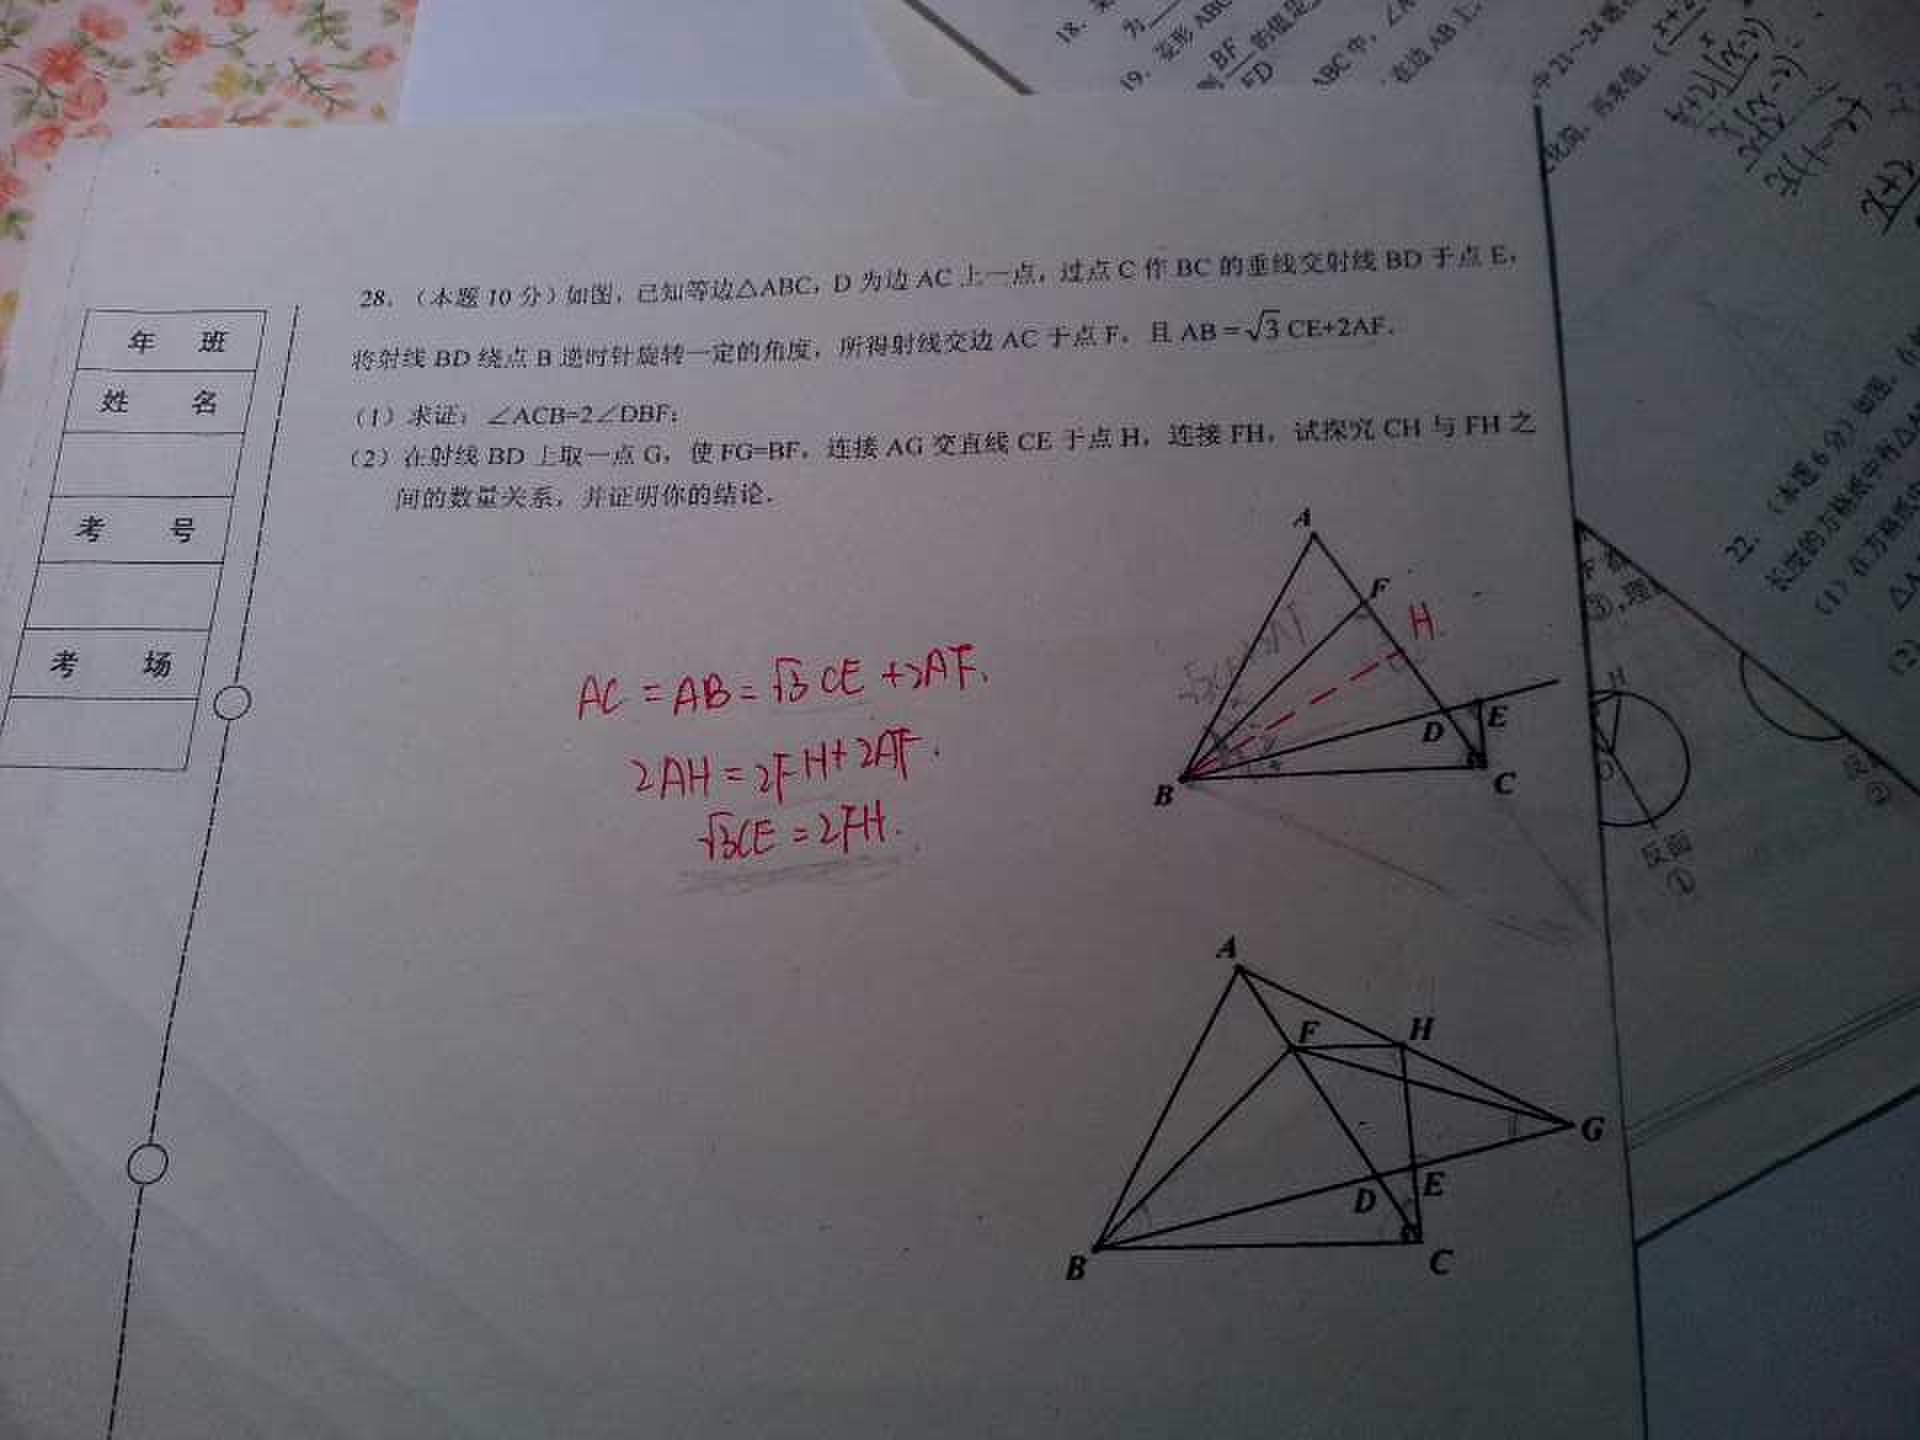 18.
为
19. 菱形 ABC
BF
FD
的值是
ABC 中，∠A
在边 AB 上
28.（本题 10 分）如图，已知等边△ABC，D 为边 AC 上一点，过点 C 作 BC 的垂线交射线 BD 于点 E，
将射线 BD 绕点 B 逆时针旋转一定的角度，所得射线交边 AC 于点 F，且 AB=√3 CE+2AF.
（1）求证：∠ACB=2∠DBF；
（2）在射线 BD 上取一点 G，使 FG=BF，连接 AG 交直线 CE 于点 H，连接 FH，试探究 CH 与 FH 之
间的数量关系，并证明你的结论．
年 班
姓 名
考 号
考 场
AC = AB = √3 CE + 2AF.
2AH = 2FH + 2AF.
√3CE = 2FH.
A
F
H.
D
E
B
C
A
F
H
G
D
E
B
C
22.（本题 6 分）如图，在
长度的方格纸中有△A
（1）在方格纸
△A
（2）
H
反面
①
②